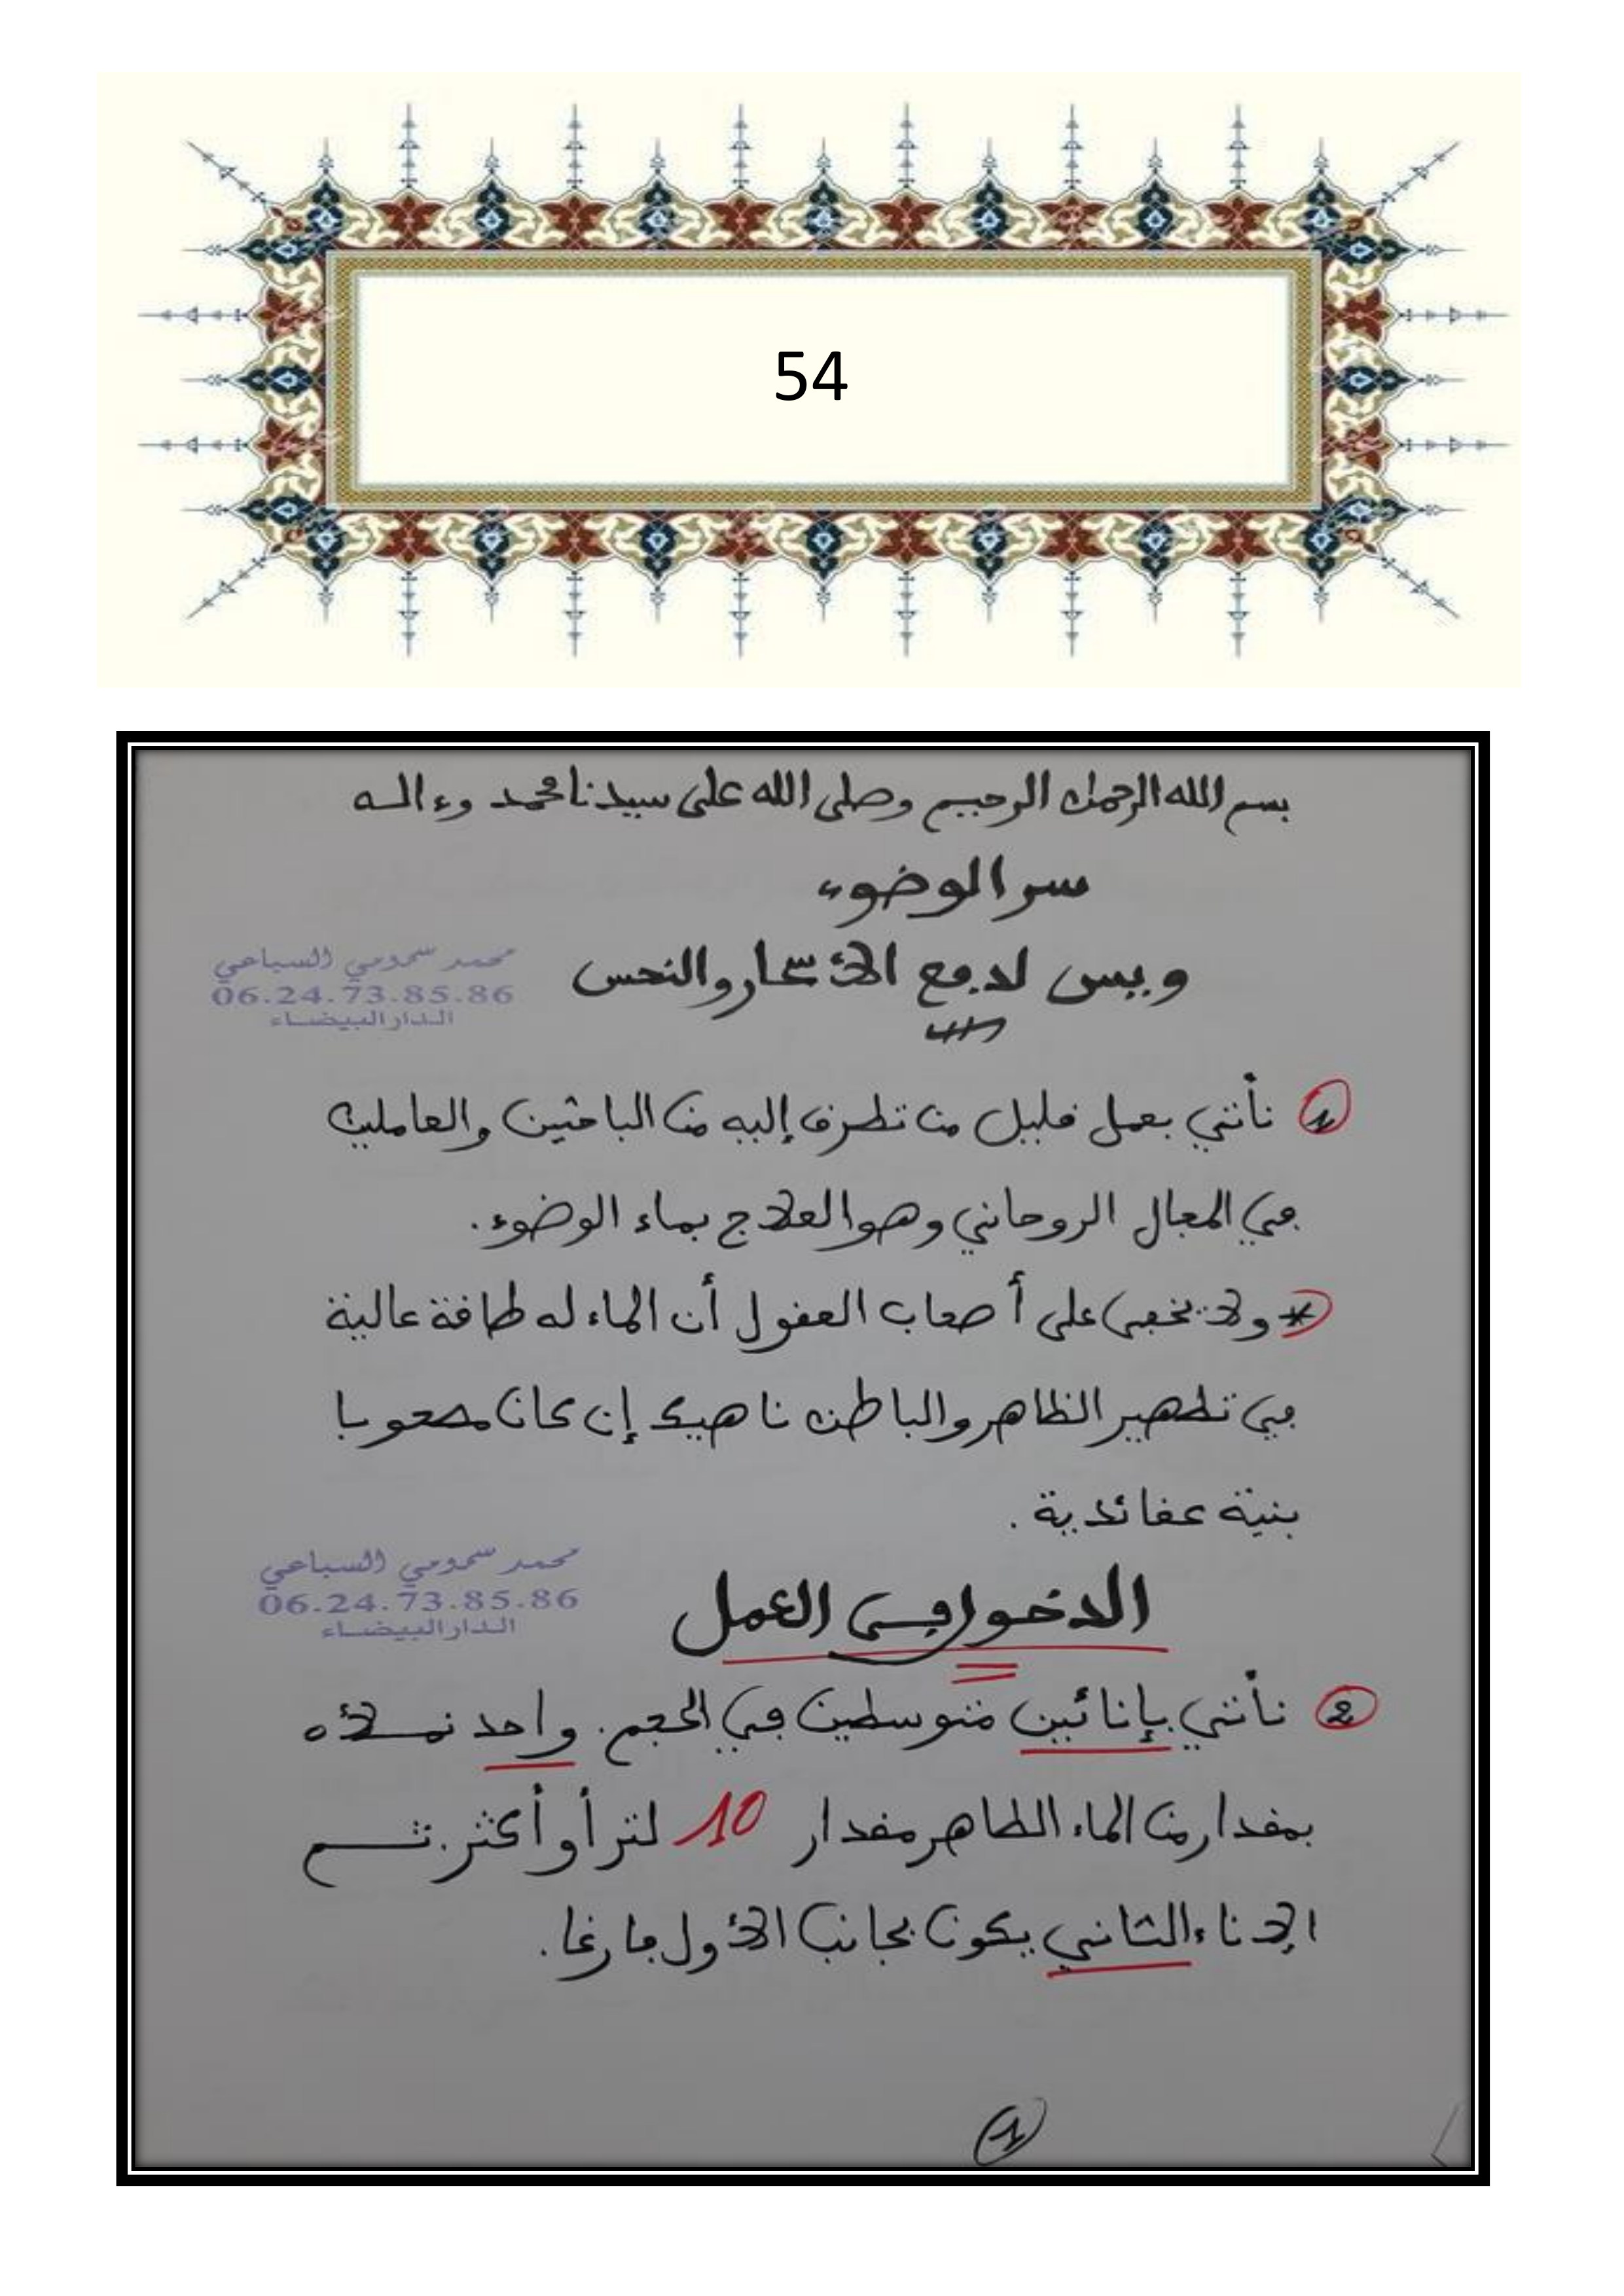 54
بسم الله الرحمان الرحيم وصلى الله على سيدنا محمد وءاله
سر الوضوء
ويس لدفع الأسحار والنحس
محمد سمومي السباعي
06.24.73.85.86
الدار البيضاء
1 نأتي بعمل قليل من تطرق إليه من الباحثين والعاملين
في المجال الروحاني وهو العلاج بماء الوضوء.
* ولا يخفى على أصحاب العقول أن الماء له طاقة عالية
في تطهير الظاهر والباطن ناهيك إن كان مصحوبا
بنية عقائدية.
محمد سمومي السباعي
06.24.73.85.86
الدار البيضاء
الدخول في العمل
2 نأتي بإنائين متوسطين في الحجم. واحد نملأه
بمقدار من الماء الطاهر مقدار 10 لتر أو أكثر. ثم
الإناء الثاني يكون بجانب الأول فارغا.
1